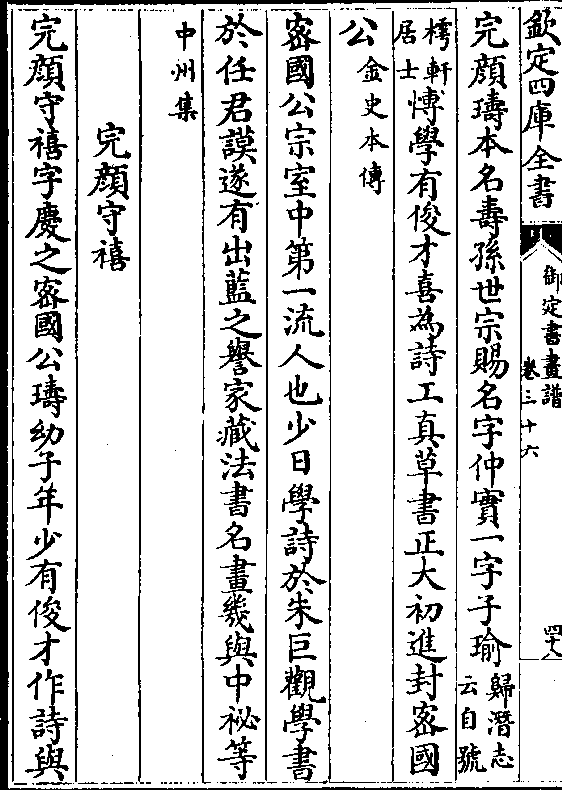 欽定四庫全書
御定書畫譜
卷三十六
四十八
完顔璹本名壽孫世宗賜名字仲實一字子瑜歸潛志
云自號
樗軒
居士博學有俊才喜為詩工真草書正大初進封宻國
公金史本傳
宻國公宗室中第一流人也少日學詩於朱巨觀學書
於任君謨遂有出藍之譽家藏法書名畫幾與中祕等
中州集
完顔守禧
完顔守禧字慶之宻國公璹幼子年少有俊才作詩與